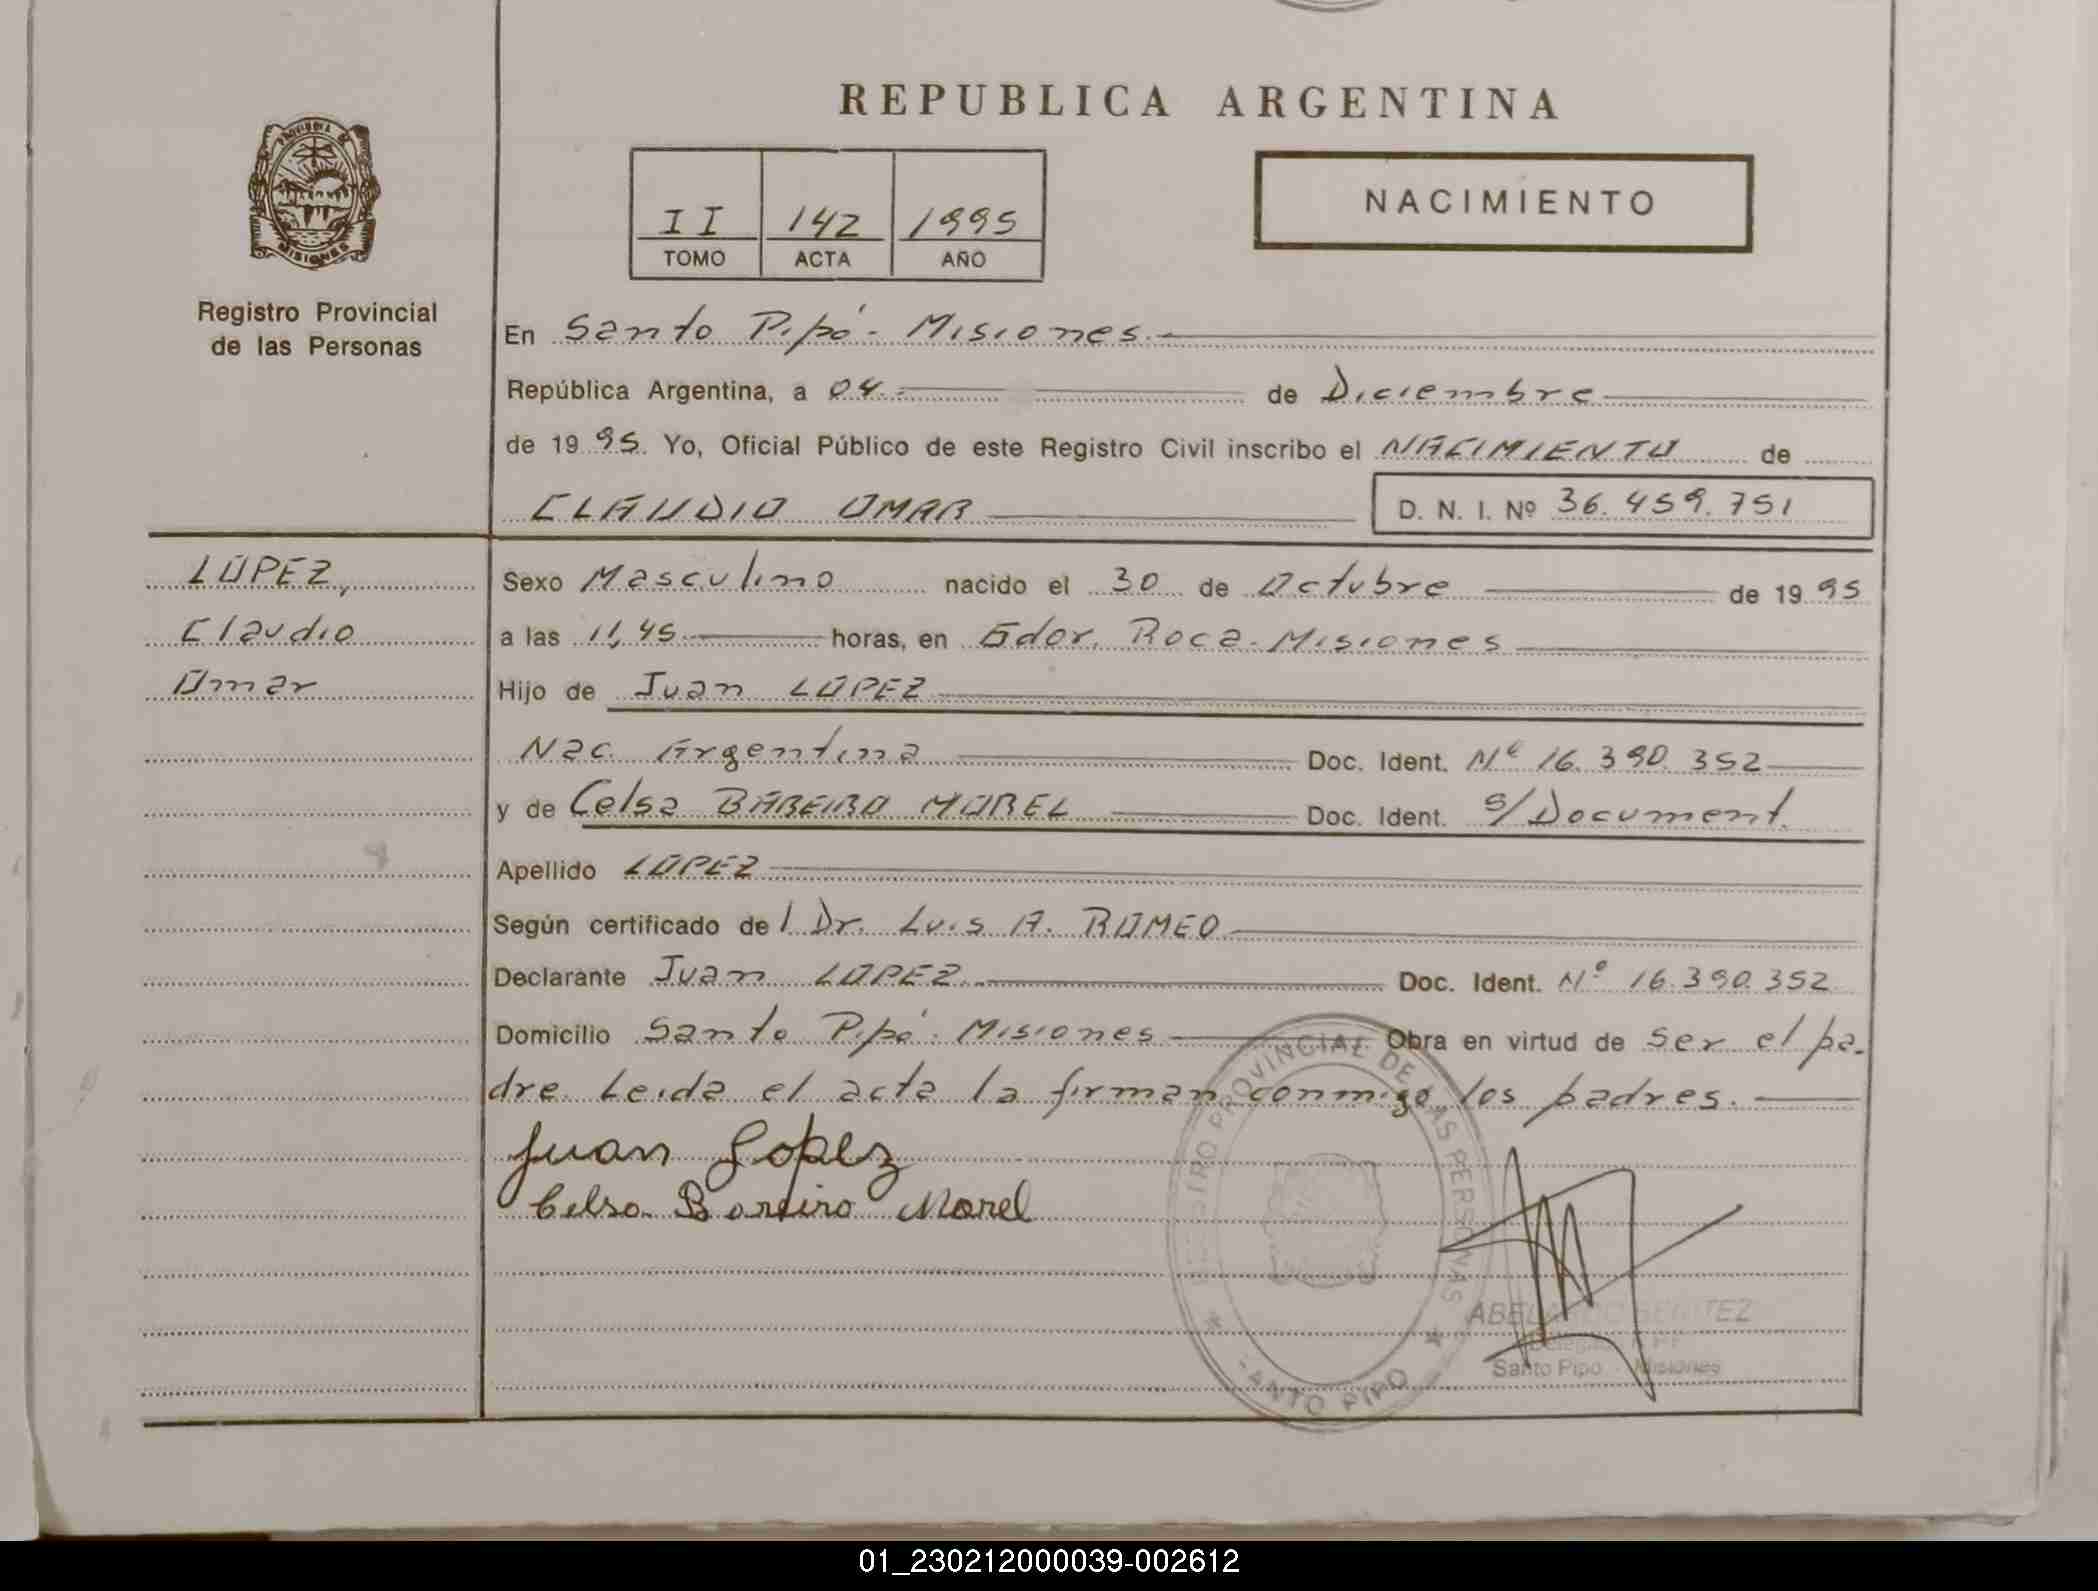 REPUBLICA ARGENTINA
PROVINCIA DE
MISIONES
Registro Provincial
de las Personas
II 142 1995
TOMO ACTA AÑO
NACIMIENTO
En Santo Pipó - Misiones.
República Argentina, a 04.- de Diciembre
de 19 95. Yo, Oficial Público de este Registro Civil inscribo el NACIMIENTO de
CLAUDIO OMAR D. N. I. Nº 36.459.751
LOPEZ,
Claudio
Omar
Sexo Masculino nacido el 30 de Octubre de 19 95
a las 11,45 horas, en Gdor. Roca - Misiones
Hijo de Juan LOPEZ
Nac. Argentina Doc. Ident. Nº 16.390.352
y de Celsa BAREIRO MOREL Doc. Ident. s/Document.
Apellido LOPEZ
Según certificado del Dr. Luis A. ROMEO
Declarante Juan LOPEZ.- Doc. Ident. Nº 16.390.352
Domicilio Santo Pipó - Misiones Obra en virtud de ser el pa-
dre. Leida el acta la firman conmigo los padres.
Juan Lopez
Celsa Bareiro Morel
REGISTRO PROVINCIAL DE LAS PERSONAS
SANTO PIPO
ABELARDO BENITEZ
Santo Pipo - Misiones
01_230212000039-002612